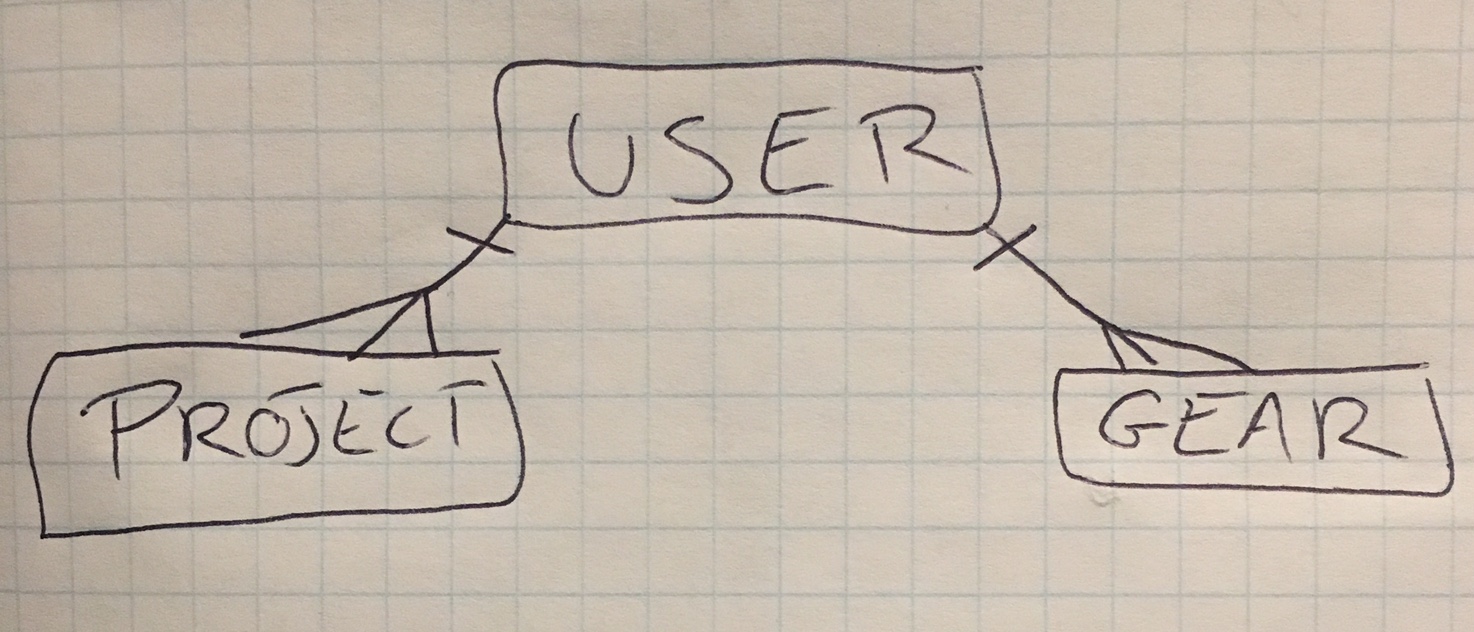 USER
PROJECT
GEAR